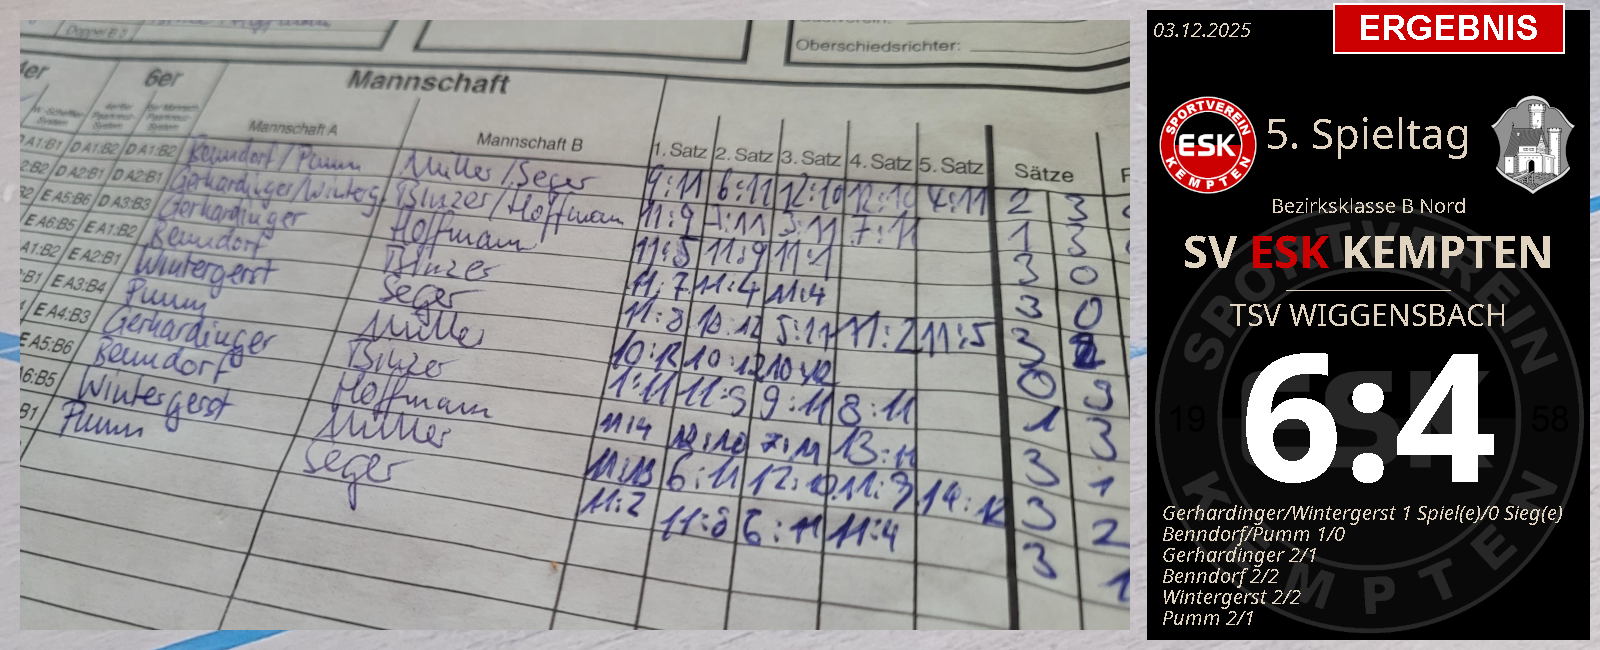 Doppel B 3
Oberschiedsrichter:
4er 6er Mannschaft
Mannschaft A Mannschaft B 1. Satz 2. Satz 3. Satz 4. Satz 5. Satz Sätze
D A1:B1 D A1:B2 D A1:B2 Benndorf/Pumm Müller/Seger 9:11 6:11 12:10 12:10 4:11 2 3
D A2:B1 D A2:B1 Gerhardinger/Winterg. Binzer/Hoffmann 11:9 11 11 7:11 1 3
E A5:B6 D A3:B3 Gerhardinger Hoffmann 11:8 11:9 11:1 3 0
E A6:B5 E A1:B2 Benndorf Binzer 11:7 11:4 11:4 3 0
A1:B2 E A2:B1 Wintergerst Seger 11:8 10:12 5:11 11:2 11:5 3 2
E A3:B4 Pumm Müller 10:12 10:12 10:12 0 3
E A4:B3 Gerhardinger Binzer 1:11 11:9 9:11 8:11 1 3
E A5:B6 Benndorf Hoffmann 11:4 12:10 7:11 13:11 3 1
A6:B5 Wintergerst Müller 11:13 6:11 12:10 11:9 14:12 3 2
B1 Pumm Seger 11:2 11:8 6:11 11:4 3 1
03.12.2025
ERGEBNIS
SPORTVEREIN
ESK
KEMPTEN
5. Spieltag
Bezirksklasse B Nord
SV ESK KEMPTEN
TSV WIGGENSBACH
6:4
19 58
Gerhardinger/Wintergerst 1 Spiel(e)/0 Sieg(e)
Benndorf/Pumm 1/0
Gerhardinger 2/1
Benndorf 2/2
Wintergerst 2/2
Pumm 2/1
SPORTVEREIN
ESK
KEMPTEN